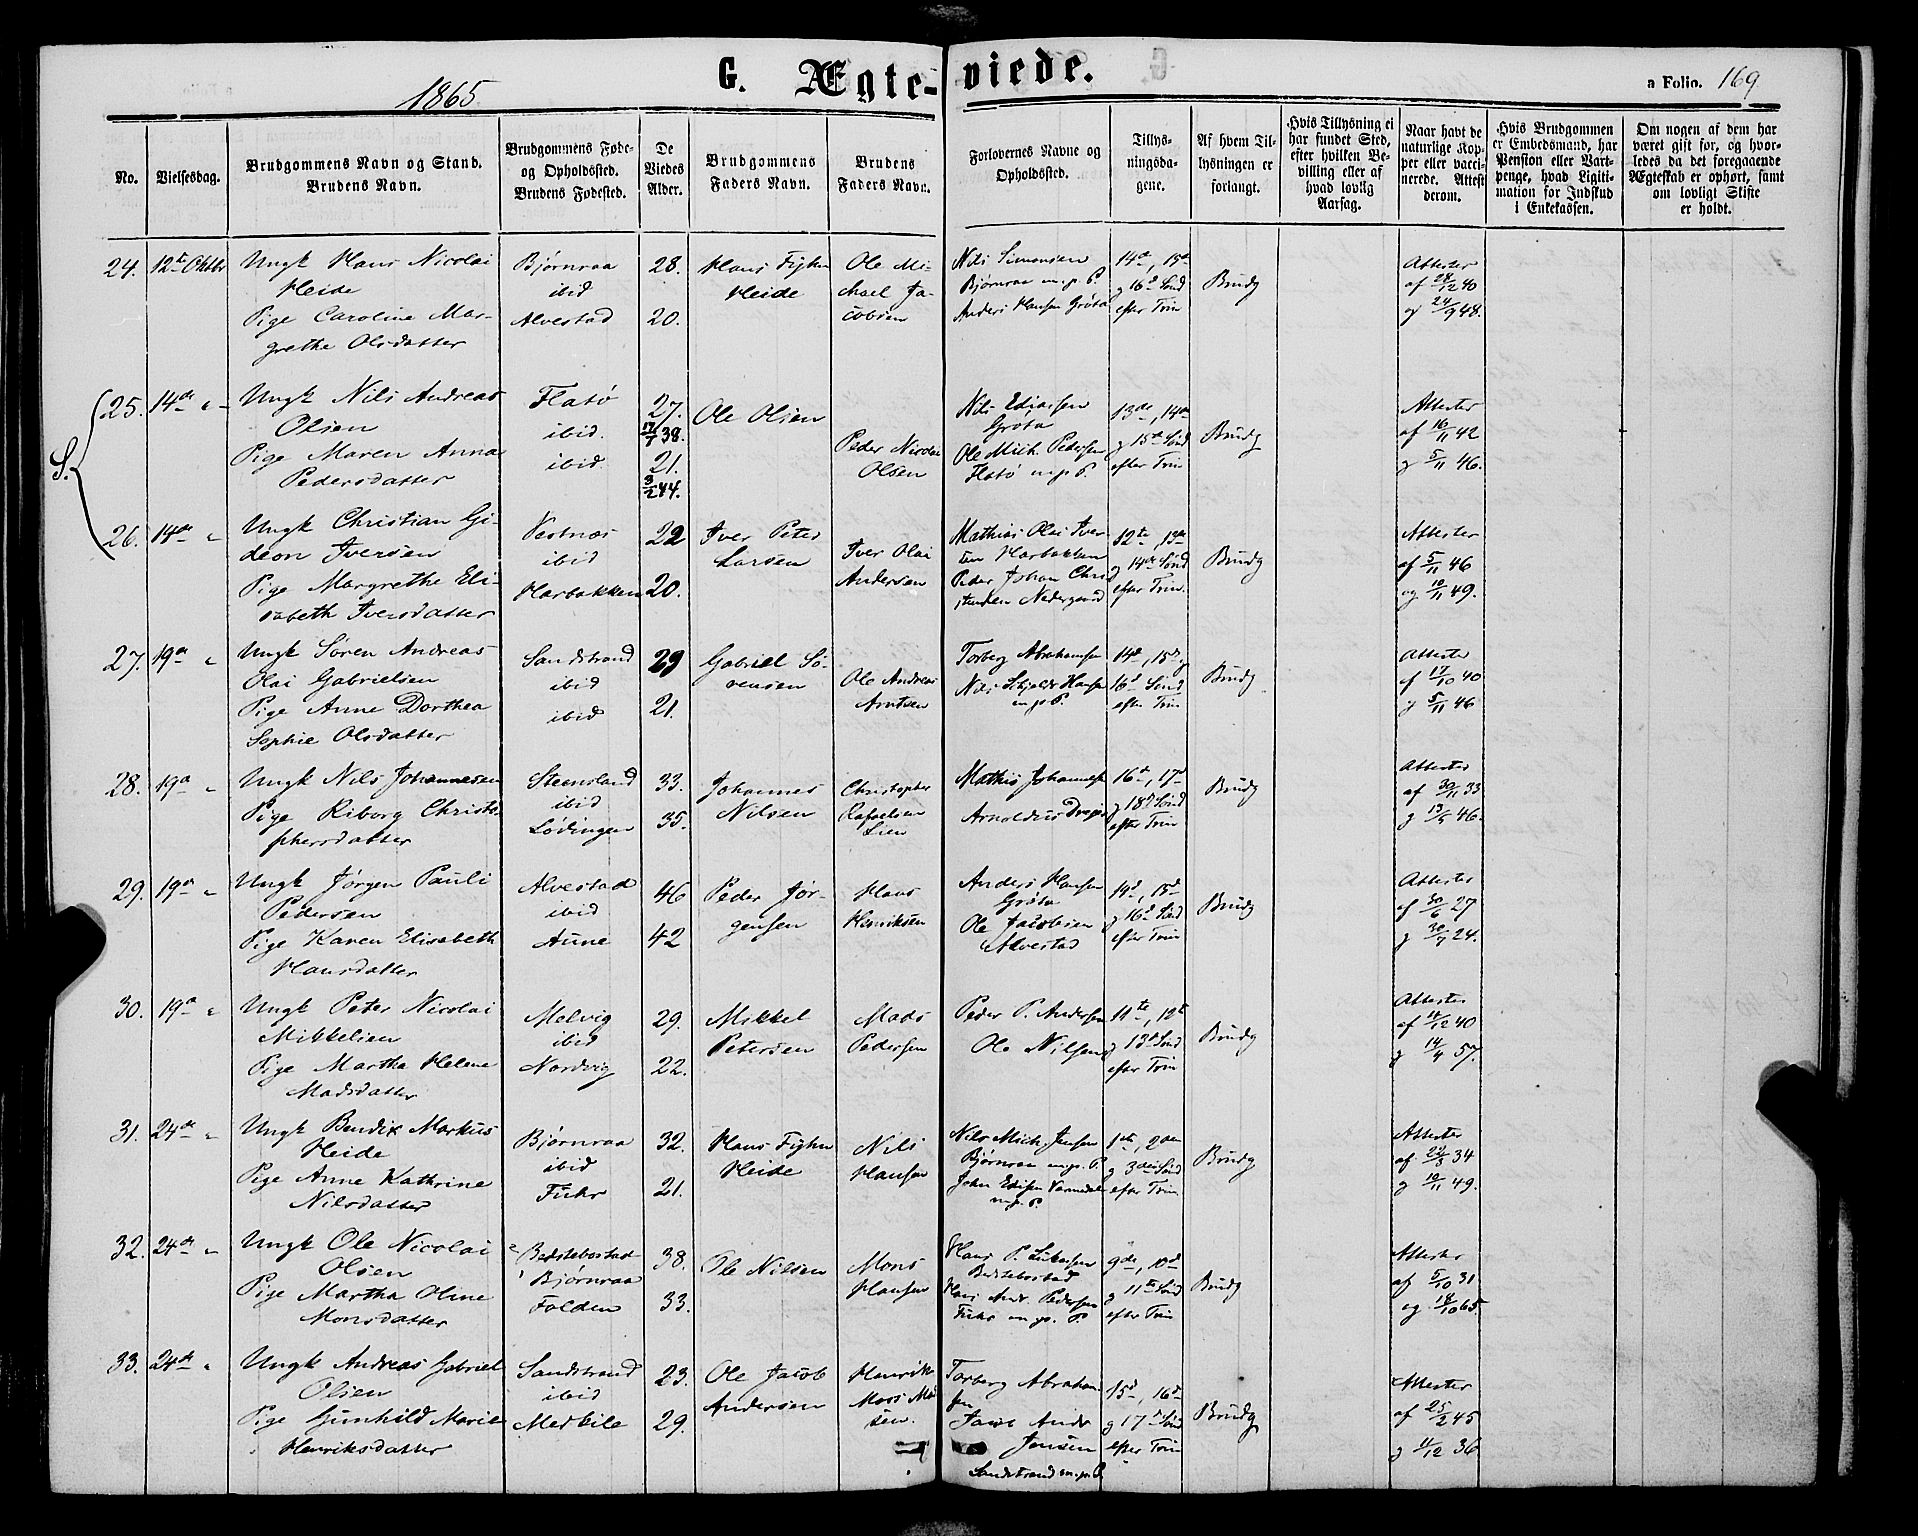 1865
G. Ægte-viede.
a Folio. 169
No.
Vielsesdag.
Brudgommens Navn og Stand.
Brudens Navn.
Brudgommens Føde-
og Opholdssted.
Brudens Fødested.
De
Viedes
Alder.
Brudgommens
Faders Navn.
Brudens
Faders Navn.
Forlovernes Navne og
Opholdssted.
Tillys-
ningsda-
gene.
Af hvem Til-
lysningen er
forlangt.
Hvis Tillysning ei
har fundet Sted,
efter hvilken Be-
villing eller af
hvad lovlig
Aarsag.
Naar havt de
naturlige Kop-
per eller vacci-
nerede. Attest
derom.
Hvis Brudgommen
er Embedsmand, har
Pension eller Vart-
penge, hvad Ligiti-
mation for Indskud
i Enkekassen.
Om nogen af dem har
været gift før, og hvor-
ledes da det foregaaende
Ægteskab er ophørt, samt
om lovligt Skifte
er holdt.
24. 12te Oktbr
Ungk Hans Nicolai
Heide
Pige Caroline Mar-
grethe Olsdatter
Bjørnraa
ibid
Alvestad
28.
20.
Hans Fyhn
Heide
Ole Mi-
chael Ja-
cobsen
Nils Simonsen
Bjørnraa m.p.P.
Anders Hansen Grøta
14de, 15de
g 16d Sønd
efter Trin
Brudg
Attester
af 28/12 40
g 24/9 48.
S.
25. 14de "
Ungk Nils Andreas
Olsen
Pige Maren Anna
Pedersdatter
Flatø
ibid.
ibid.
27.
17/7 38.
21.
3/2 44.
Ole Olsen
Peder Nicolai
Olsen
Nils Ediassen
Grøta
Ole Mich. Pedersen
Flatø m.p.P.
13de, 14de
g 15de Sønd
efter Trin
Brudg
Attester
af 16/11 42
g 5/11 46.
26. 14de "
Ungk Christian Gi-
deon Iversen
Pige Margrethe Eli-
sabeth Iversdatter
Vestnæs
ibid
Harbakken
22
20.
Iver Peter
Larsen
Iver Olai
Andersen
Mathias Olai Iver
sen Harbakken
Peder Johan Chri
stensen Nedergaard
12te, 13de
g 14de Sønd
efter Trin.
Brudg
Attester
af 5/11 46
og 10/11 49.
27. 19de "
Ungk Søren Andreas
Olai Gabrielsen
Pige Anne Dorthea
Sophie Olsdatter
Sandstrand
ibid
ibid
29
21.
Gabriel Sø-
rensen
Ole Andreas
Arntsen
Torberg Abrahamsen
Nils Schjelde Hansen
m.p.P.
14d, 15d g
16d Sønd
efter Trin
Brudg
Attester
af 17/10 40
g 5/11 46
28. 19de "
Ungk Nils Johannesen
Pige Riborg Christo
phersdatter
Steensland
ibid
Lødingen
33.
35.
Johannes
Nilsen
Christopher
Rafaelsen
Lien
Mathis Johannesen
Arnoldus
16de, 17d
g 18d Sønd
efter Trin
Brudg
Attester
af 30/11 33
g 13/5 46.
29. 19de "
Ungk Jørgen Pauli
Pedersen
Pige Karen Elisabeth
Hansdatter
Alvestad
ibid
Aune
46
42
Peder Jør-
gensen
Hans
Henriksen
Anders Hansen
Grøta
Ole Jacobsen
Alvestad
14d, 15d
g 16d Sønd
efter Trin
Brudg
Attester
af 30/6 27
g 30/7 24.
30. 19de "
Ungk Peter Nicolai
Mikkelsen
Pige Martha Helene
Madsdatter
Melvig
ibid
Nordvig
29.
22.
Mikkel
Petersen
Mads
Pedersen
Peder P. Andersen
Ole Nilsen
11te, 12te
g 13d Sønd
efter Trin
Brudg
Attester
af 14/12 40
g 14/4 57.
31. 24de "
Ungk Bendix Markus
Heide
Pige Anne Kathrine
Nilsdatter
Bjørnraa
ibid
Fuhr
32.
21.
Hans Fyhn
Heide
Nils
Hansen
Nils Mich. Jensen
Bjørnraa m.p.P.
John Edisen
m.p.P.
1ste, 2den
g 3die Sønd
efter Trin
Brudg
Attester
af 24/8 34
g 10/11 49.
32. 24de "
Ungk Ole Nicolai
Olsen
Pige Martha Oline
Monsdatter
Bedstebostad
Bjørnraa
Folden
38.
33.
Ole Nilsen
Mons
Hansen
Hans P. Lukassen
Bedstebostad
Hans Andr. Pedersen
Fuhr m.p.P.
9de, 10de
g 11te Sønd
efter Trin
Brudg
Attester
af 5/10 31
og 18/10 65.
33. 24de "
Ungk Andreas Gabriel
Olsen
Pige Gunhild Marie
Henriksdatter
Sandstrand
ibid
Medkile
23.
29.
Ole Jacob
Andersen
Henrik
Mons Mon
sen.
Torberg Abraham
sen
Jens Andr
Jensen
Sandstrand m.p.P.
15d, 16de
g 17de Sønd
efter Trin
Brudg
Attester
af 25/2 45
g 11/12 36